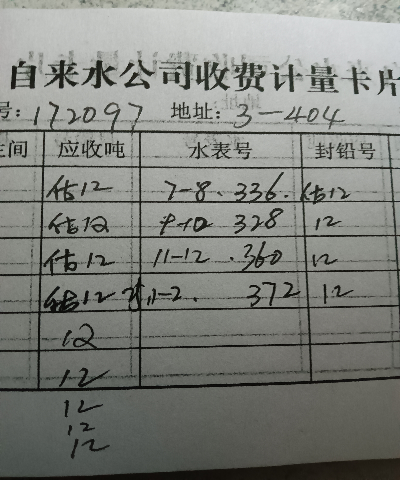 自来水公司收费计量卡片
号: 172097 地址: 3-404
间 应收吨 水表号 封铅号
估12 7-8. 336. 估12
估12 9-10 328 12
估12 11-12 . 360 12
估12 1-2. 372 12
12
12
12
12
12